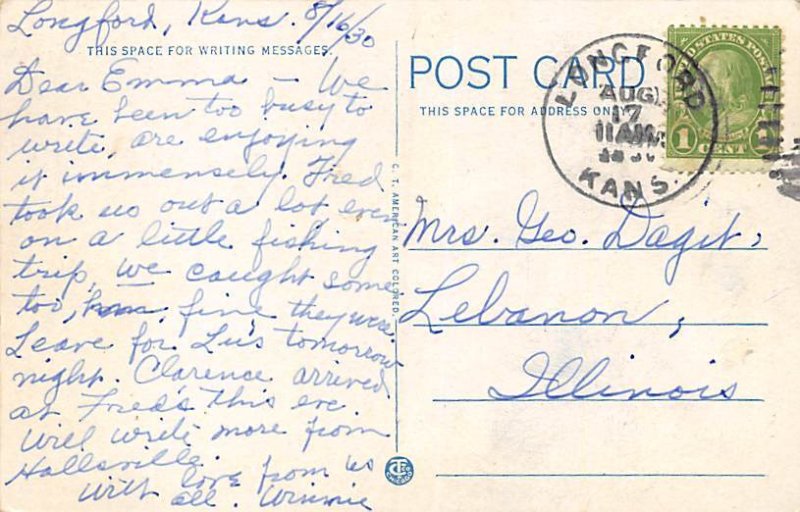 Longford, Kans. 8/16/30
THIS SPACE FOR WRITING MESSAGES.
Dear Emma – We
have been too busy to
write, are enjoying
it immensely. Fred
took us out a lot even
on a little fishing
trip, we caught some
too, fine they were.
Leave for Lu's tomorrow
night. Clarence arrived
at Fred's this eve.
Will write more from
Hallsville.
With love from us
all. Winnie
C. T. AMERICAN ART COLORED.
POST CARD
THIS SPACE FOR ADDRESS ONLY
LONGFORD
AUG
17
11AM
KANS.
UNITED STATES POSTAGE
1 CENT 1
Mrs. Geo. Dagit,
Lebanon,
Illinois